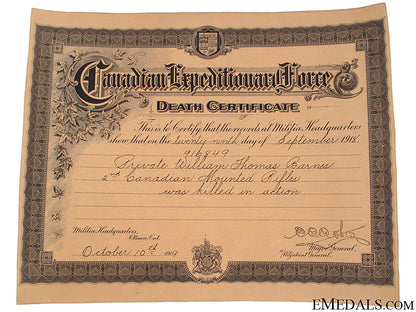 Canadian Expeditionary Force
DEATH CERTIFICATE
This is to Certify that the records at Militia Headquarters
show that on the twenty ninth day of September 1918.
916849
Private William Thomas Barnes
2nd Canadian Mounted Rifles
was killed in action
Militia Headquarters,
Ottawa, Ont.
October 10th 1919
Major General,
Adjutant General.
EMEDALS.COM